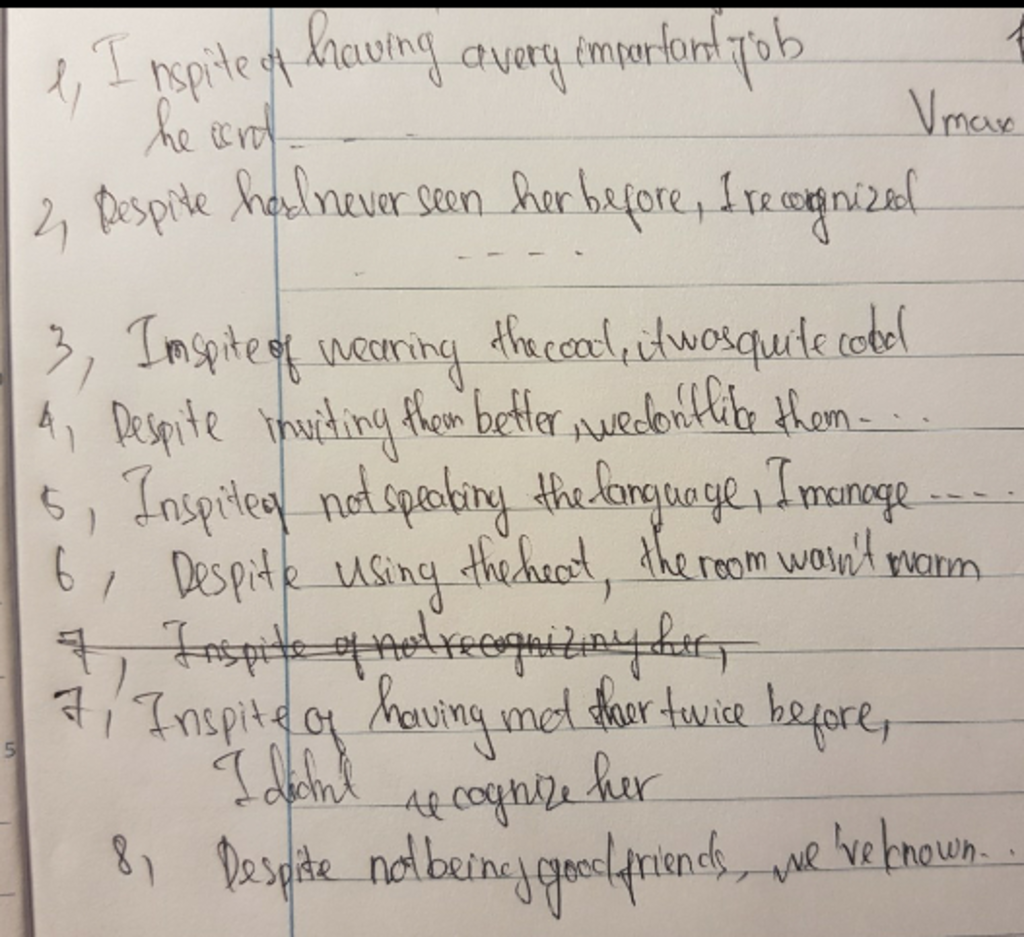 1, Inspite of having a very important job
he and - - -
Vmax
2, Despite hadnever seen her before, I recognized
- - - - .
3, Inspite of wearing the coat, it was quite cold
4, Despite inviting them better, we don't like them - . . .
5, Inspite of not speaking the language, I manage - - - - .
6, Despite using the heat, the room wasn't warm
7, Inspite of not recognizing her,
7, Inspite of having met her twice before,
I didn't recognize her
8, Despite not being good friends, we've known. . .
5